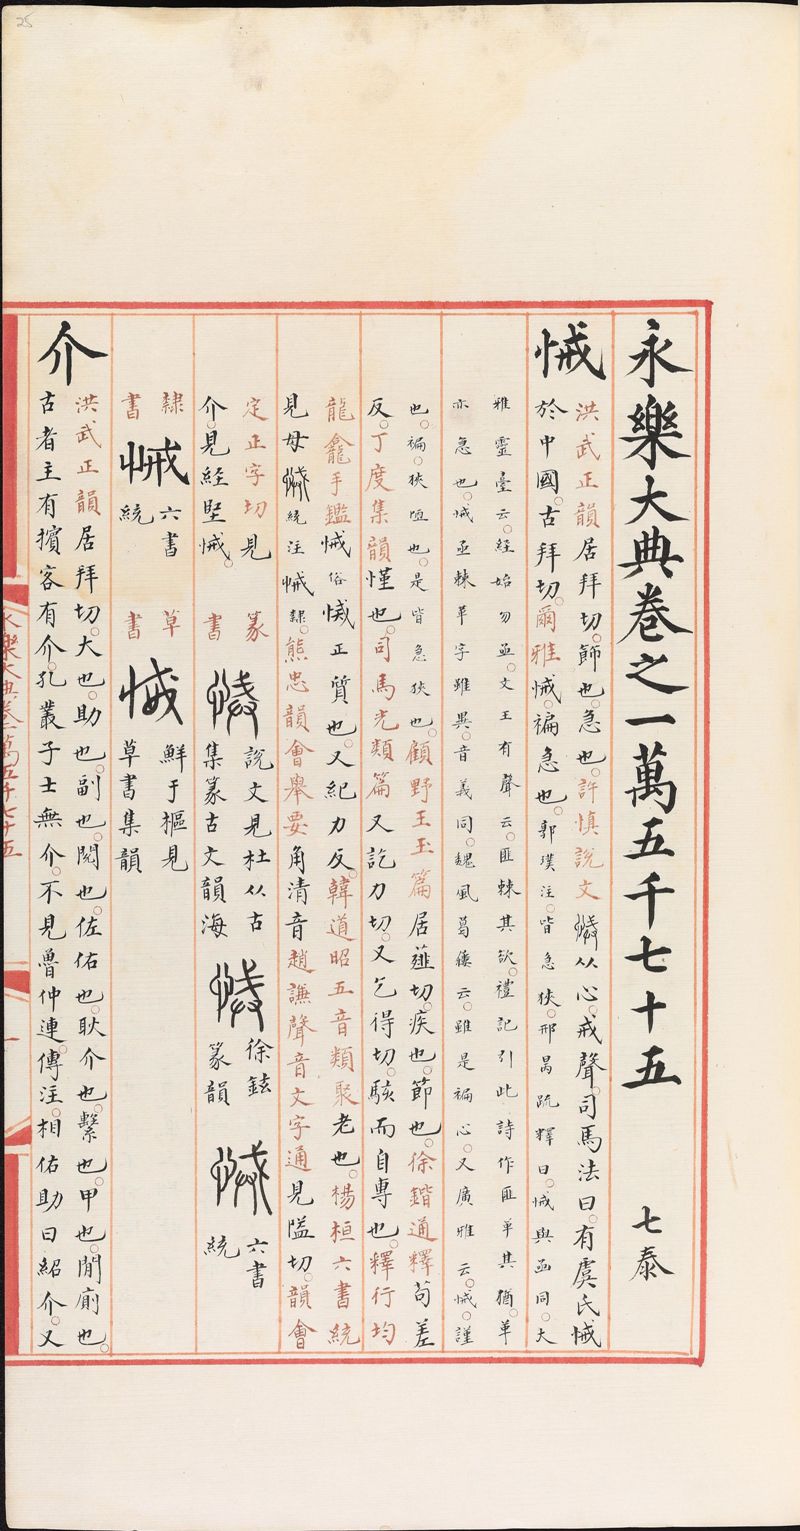 永樂大典卷之一萬五千七十五　七泰
悈
洪武正韻居拜切。飾也。急也。許慎說文从心。戒聲。司馬法曰。有虞氏悈
於中國。古拜切。爾雅悈。褊急也。郭璞注。皆急狹。邢昺疏釋曰。悈與亟同。大
雅靈臺云。經始勿亟。文王有聲云。匪棘其欲。禮記引此詩作匪革其猶。革
亦急也。悈亟棘革字雖異。音義同。魏風葛屨云。雖是褊心。又廣雅云。悈。謹
也。褊。狹陋也。是皆急狹也。顧野王玉篇居薤切。疾也。飾也。徐鍇通釋苟差
反。丁度集韻慬也。司馬光類篇又訖力切。又乞得切。駭而自專也。釋行均
龍龕手鑑悈俗悈正質也。又紀力反。韓道昭五音類聚老也。楊桓六書統
見母統注悈隸。熊忠韻會舉要角清音趙謙聲音文字通見隘切。韻會
定正字切見
介。見經堅悈。
篆書
說文見杜从古
集篆古文韻海
徐鉉
篆韻
六書
統
隸書
悈
六書
統
草書
悈
鮮于樞見
草書集韻
介
洪武正韻居拜切。大也。助也。副也。閱也。佐佑也。耿介也。繫也。甲也。閒廁也。
古者主有擯客有介。孔叢子士無介。不見魯仲連傳注。相佑助曰紹介。又
永樂大典卷一萬五千七十五
一
25